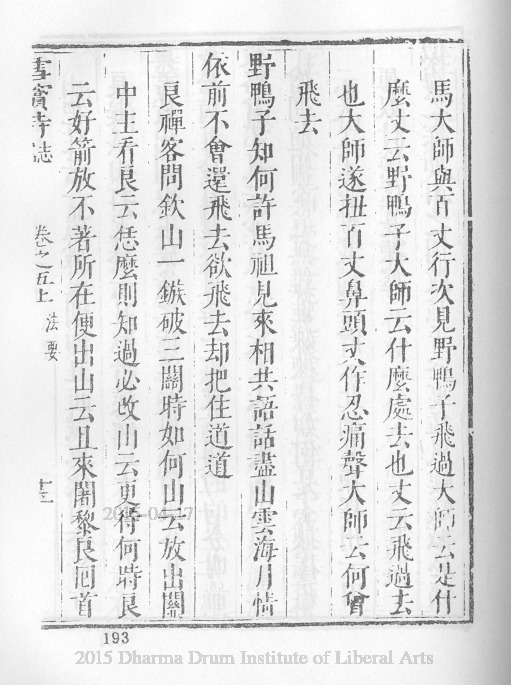 馬大師與百丈行次見野鴨子飛過大師云是什
麼丈云野鴨子大師云什麼處去也丈云飛過去
也大師遂扭百丈鼻頭丈作忍痛聲大師云何曾
飛去
野鴨子知何許馬祖見來相共語話盡山雲海月情
依前不會還飛去欲飛去却把住道道
良禪客問欽山一鏃破三關時如何山云放出關
中主看良云恁麼則知過必改山云更待何時良
云好箭放不著所在便出山云且來闍黎良囘首
雪竇寺誌 卷之五上 法要 十三
193
2015 Dharma Drum Institute of Liberal Arts